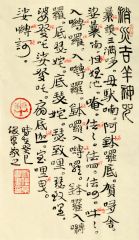 消災吉羊神咒
曩謨三滿哆母馱喃。阿鉢囉底。賀哆舍。
娑曩喃。怛姪他。唵。佉佉。佉呬。佉呬。吽吽。
入嚩囉。入嚩囉。鉢囉入嚩囉。鉢囉入嚩
囉。底瑟姹。底瑟姹。瑟致哩。瑟致哩。娑
發吒。娑發吒。扇底迦。室哩曳。
娑嚩訶。